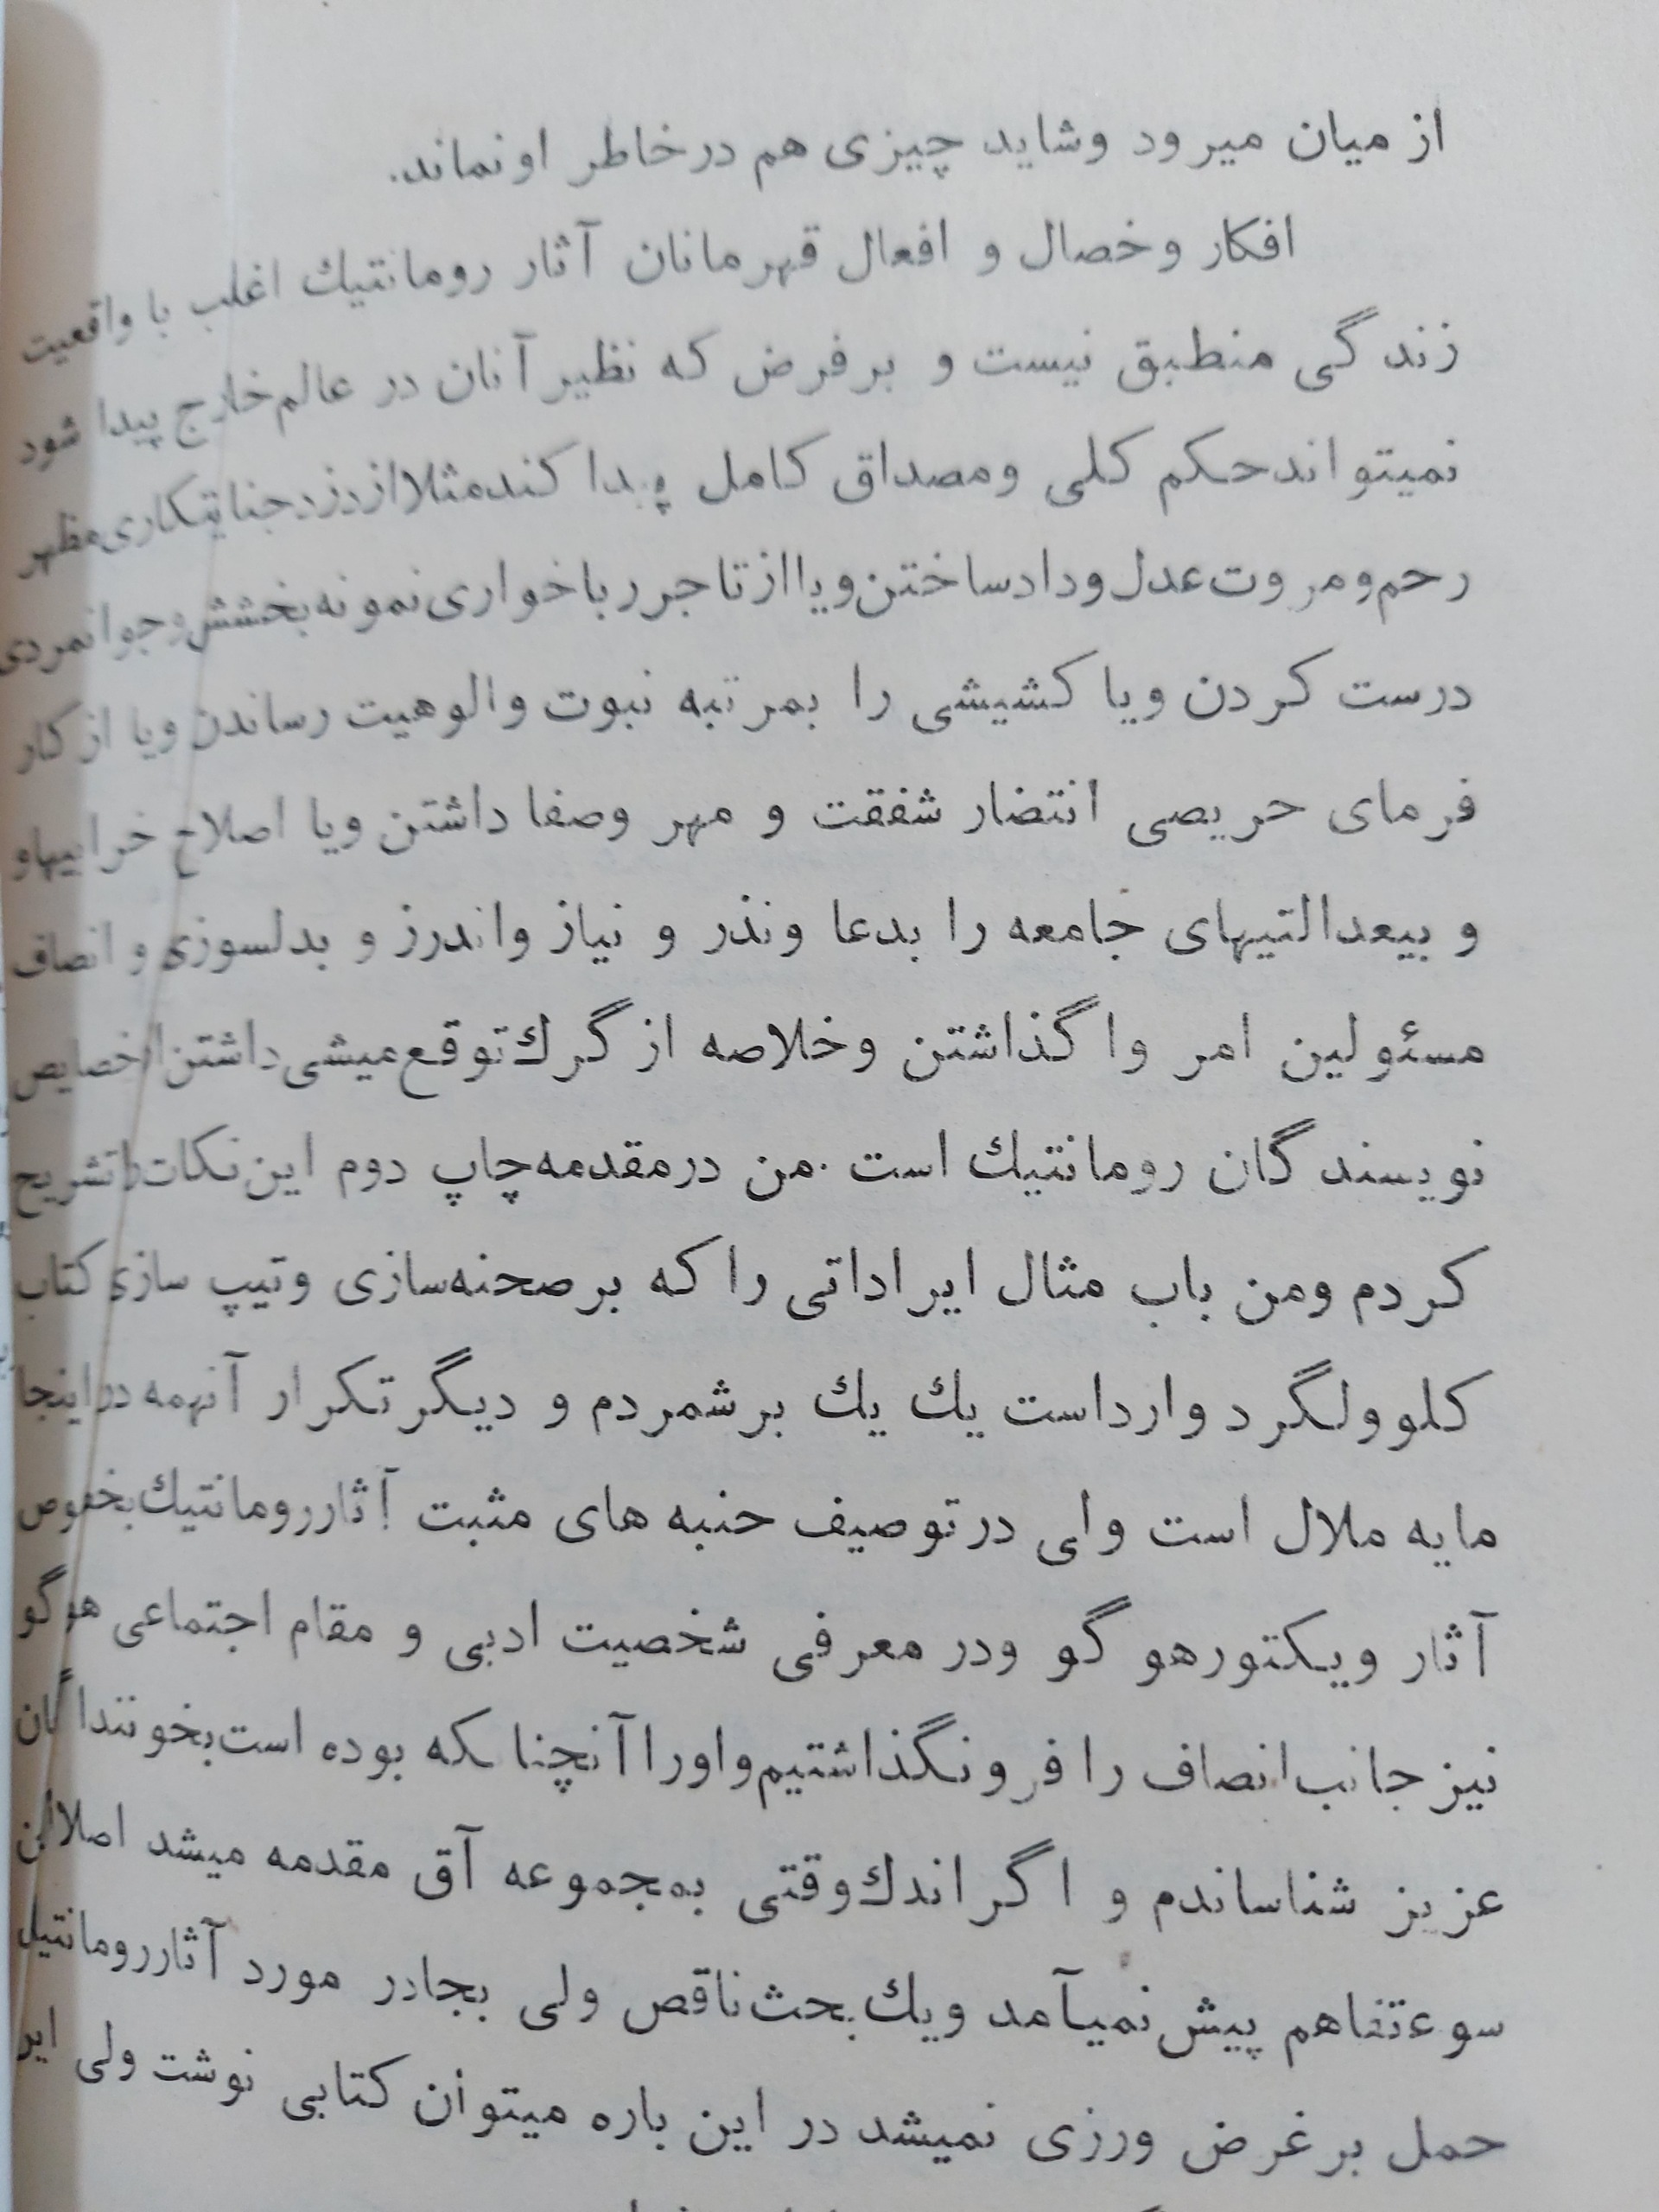 از میان میرود وشاید چیزی هم درخاطر اونماند.
افکار وخصال و افعال قهرمانان آثار رومانتیك اغلب با واقعیت
زندگی منطبق نیست و برفرض که نظیر آنان در عالم خارج پیدا شود
نمیتواند حکم کلی ومصداق کامل پیدا کند مثلا از دزد جنایتکاری مظهر
رحم ومروت عدل وداد ساختن ویا از تاجر رباخواری نمونه بخشش وجوانمردی
درست کردن ویا کشیشی را بمرتبه نبوت والوهیت رساندن ویا از کار
فرمای حریصی انتضار شفقت و مهر وصفا داشتن ویا اصلاح خرابیهاو
و بیعدالتیهای جامعه را بدعا ونذر و نیاز واندرز و بدلسوزی و انصاف
مسئولین امر واگذاشتن وخلاصه از گرك توقع میشی داشتن از خصایص
نویسندگان رومانتیك است . من درمقدمه چاپ دوم این نکات را تشریح
کردم ومن باب مثال ایراداتی را که برصحنه‌سازی وتیپ سازی کتاب
کلوولگرد وارداست یك یك برشمردم و دیگر تکرار آنهمه دراینجا
مایه ملال است ولی درتوصیف جنبه های مثبت آثار رومانتیك بخصوص
آثار ویکتورهوگو ودر معرفی شخصیت ادبی و مقام اجتماعی هوگو
نیز جانب انصاف را فرونگذاشتیم واورا آنچنا که بوده است بخونندا گان
عزیز شناساندم و اگر اندك وقتی به‌مجموعه آق مقدمه میشد اصلا این
سوءتفاهم پیش نمیآمد ویك بحث ناقص ولی بجادر مورد آثاررومانتیك
حمل برغرض ورزی نمیشد در این باره میتوان کتابی نوشت ولی این